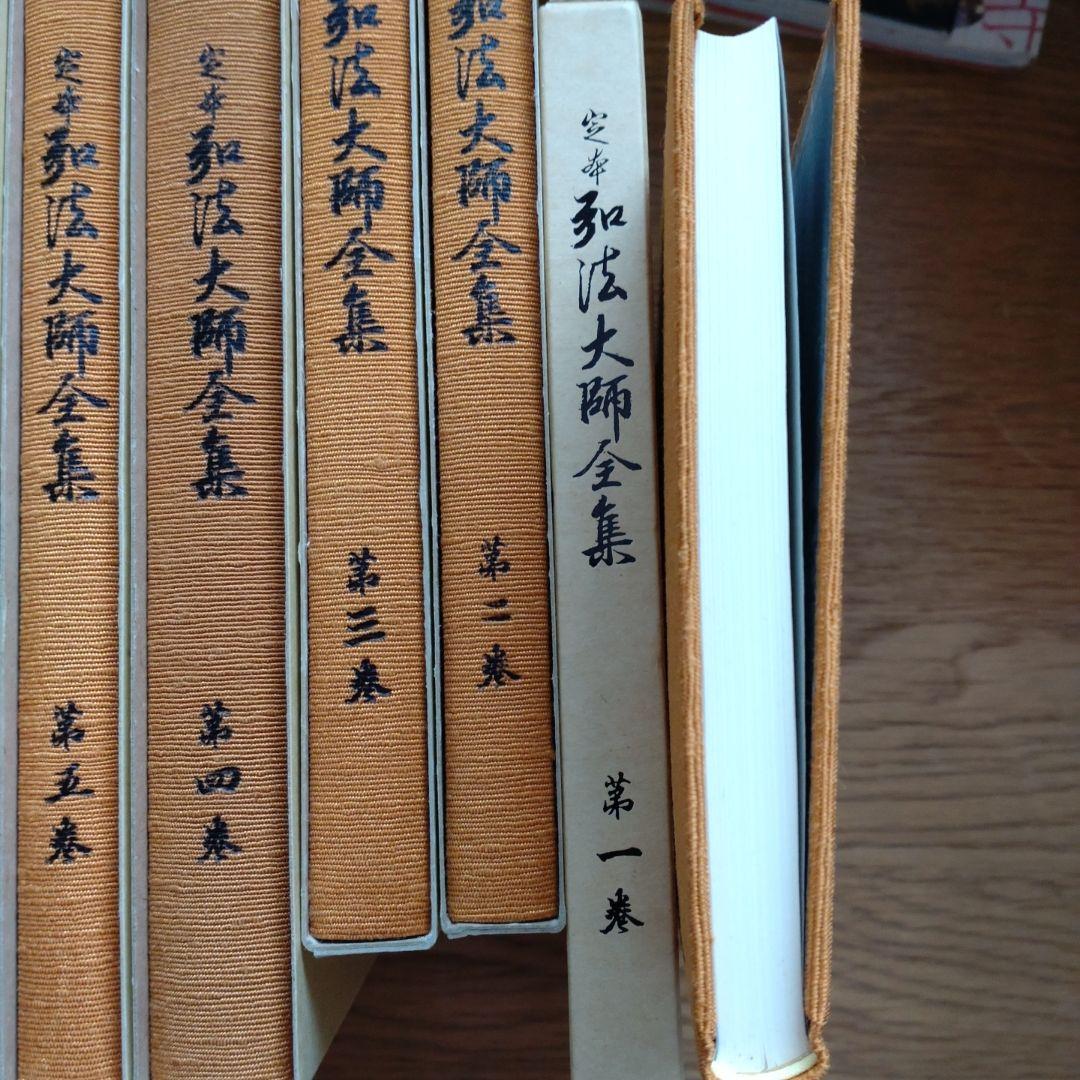 定本 弘法大師全集 第一巻
弘法大師全集 第二巻
弘法大師全集 第三巻
定本 弘法大師全集 第四巻
定本 弘法大師全集 第五巻
寺